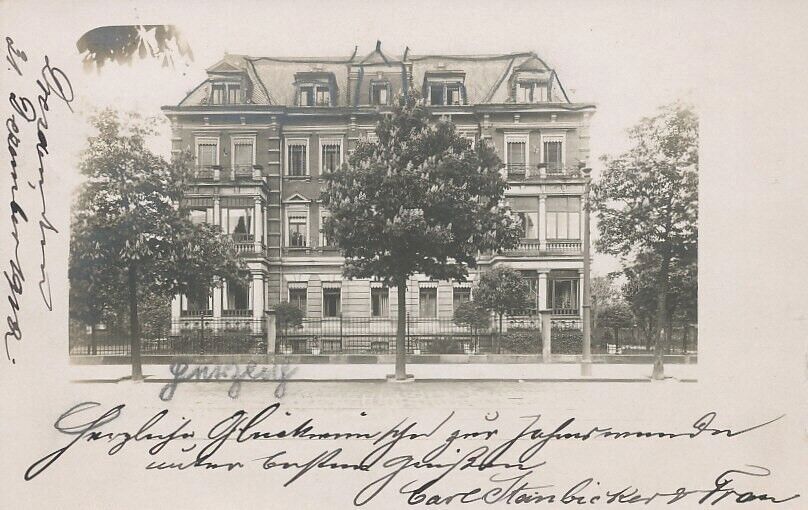 31. Dezember 1912.
Herzliche Glückwünsche zur Jahreswende
unter besten Grüßen
Carl Steinbicker & Frau